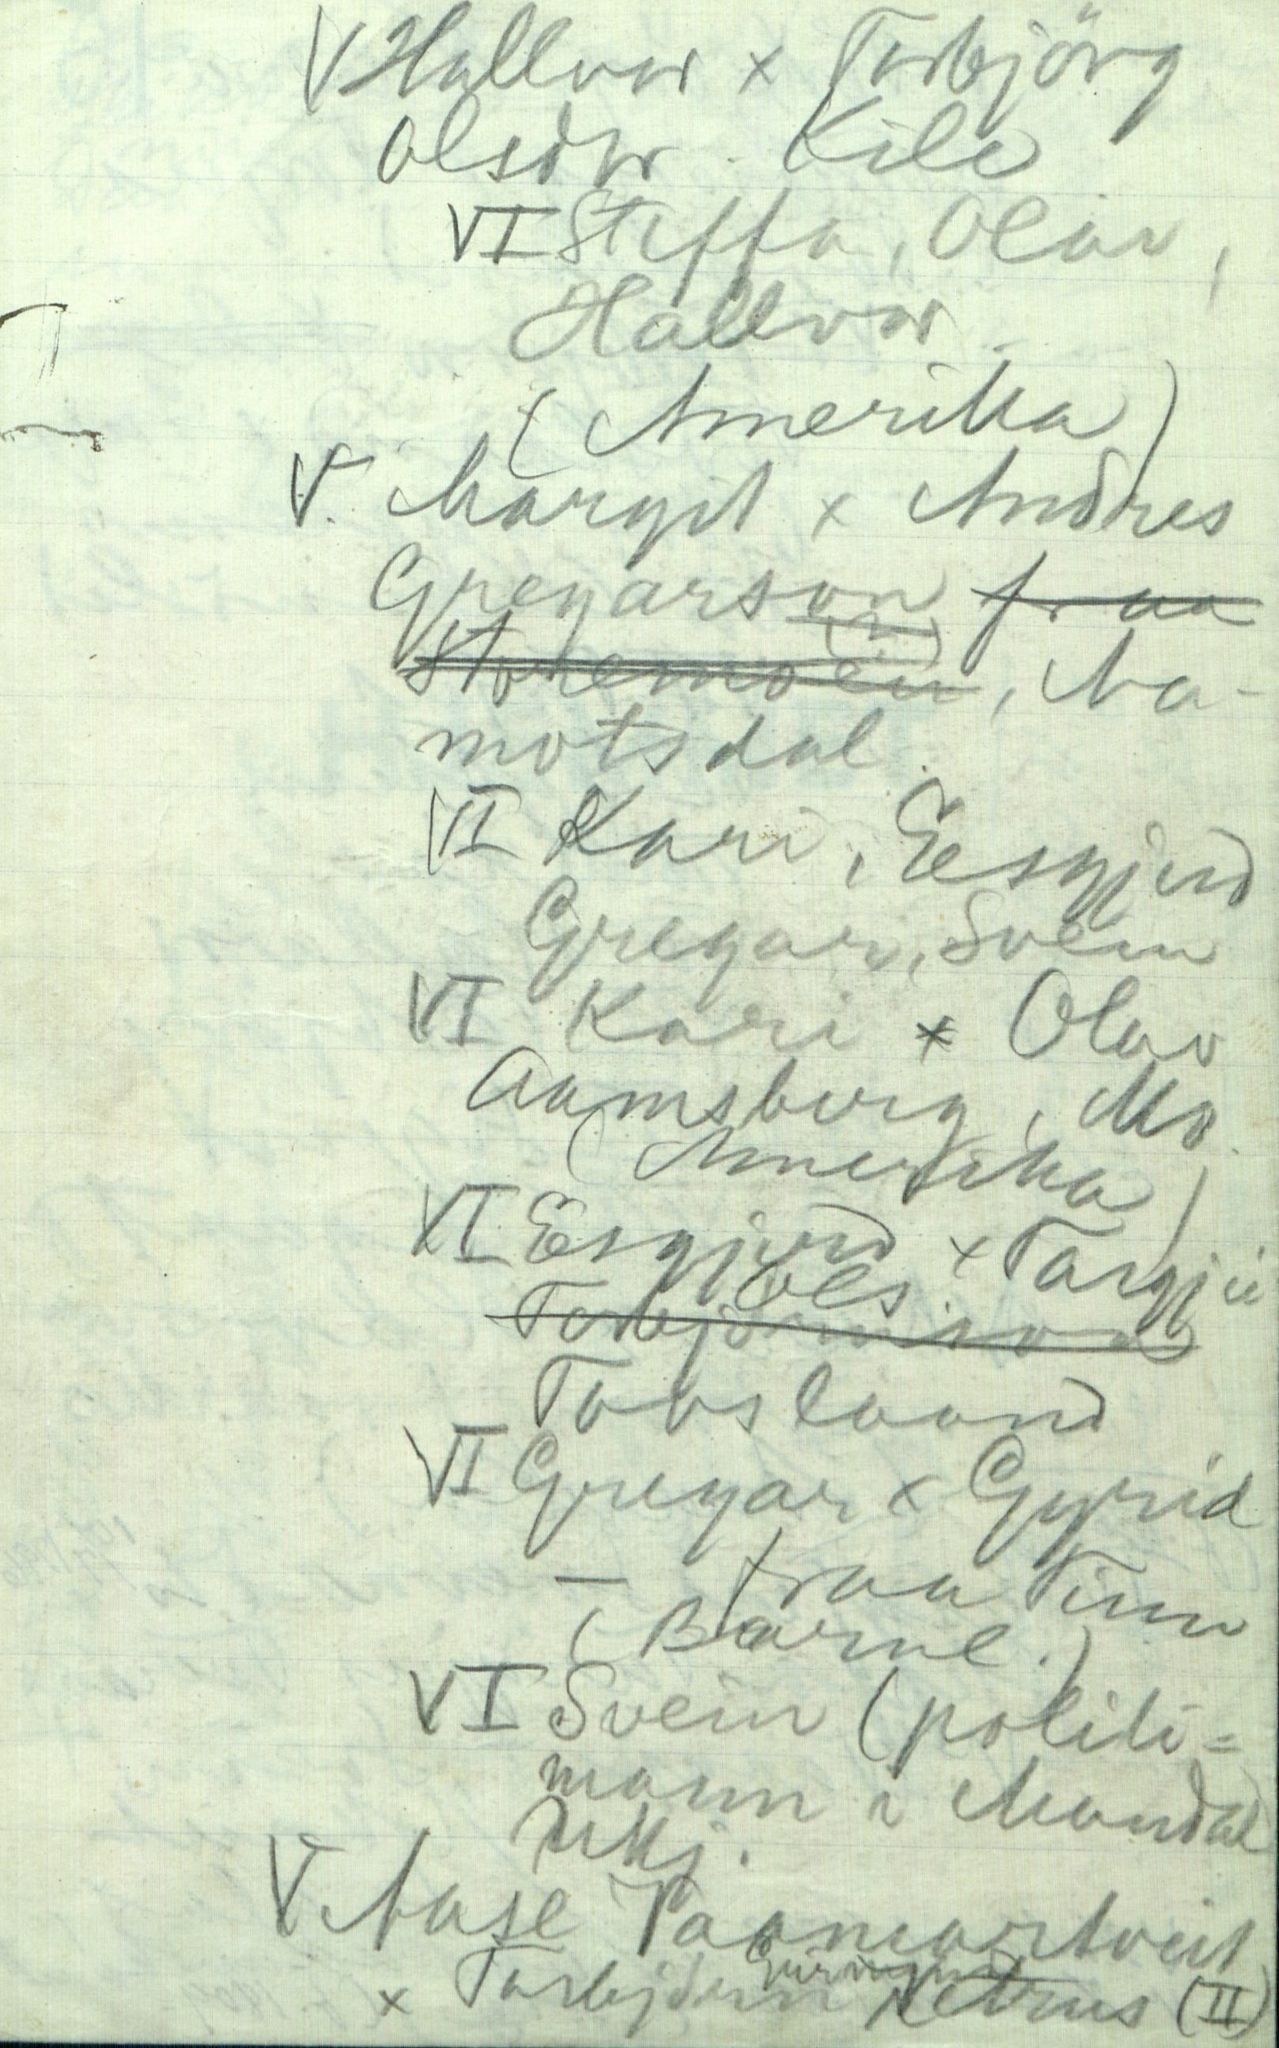 V Hallvor x Torbjörg
Olsdtr. Kile
VI Steffa, Olav,
Hallvor.
(Amerika)
V. Margit x Andres
Gregarson fraa
Storemoen, Aa-
motsdal.
VI Kari, Eesgjerd
Gregar, Svein
VI Kari x Olav
Aamsberg, Mo.
(Amerika)
VI Eesgjerd x Targjei
Ols
Torbjörnson
Taoslaand
VI Gregar x Gyrid
— fraa Tinn
(Barnl.)
VI Svein (politi=
mann i Mandal
Ukj.
V. Aase Paamaartveit
x Torbjörn Netrus (II)